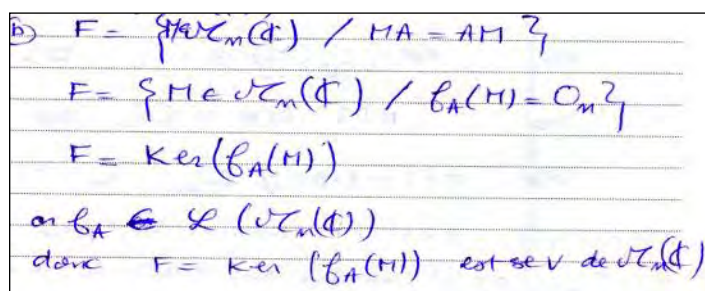 b) F = {M ∈ 𝓜n(ℂ) / MA = AM}
F = {M ∈ 𝓜n(ℂ) / fA(M) = On}
F = Ker(fA(M))
or fA ∈ ℒ(𝓜n(ℂ))
donc F = Ker (fA(M)) est se v de 𝓜n(ℂ)